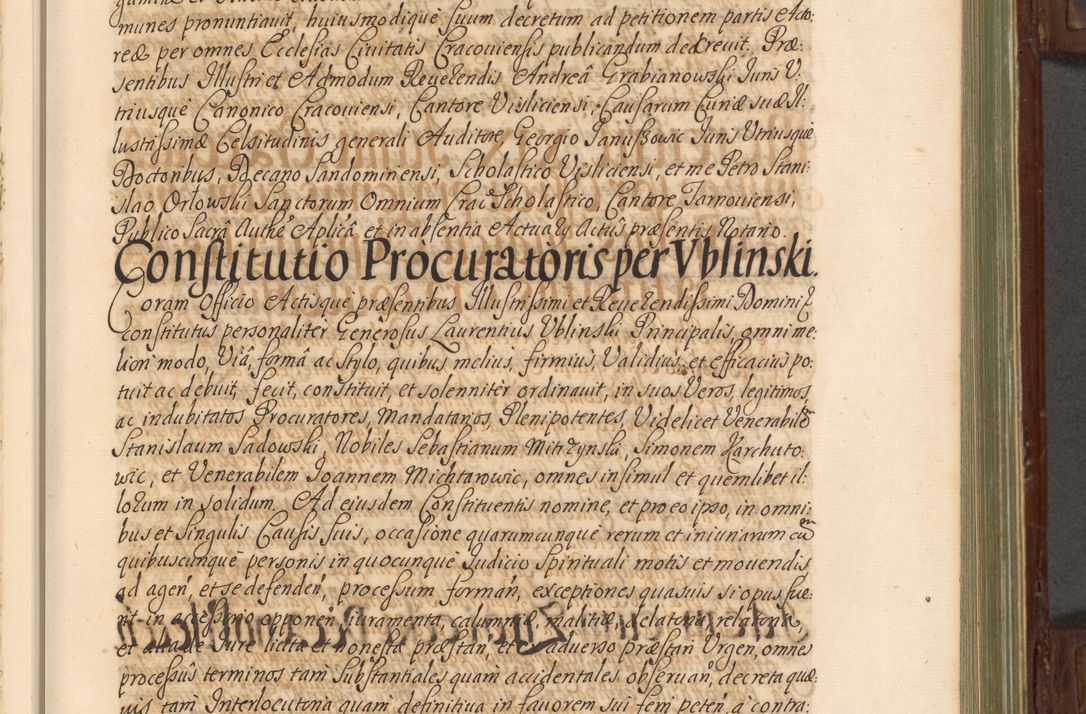 munes pronuntiavit, huiusmodique suum decretum ad petitionem partis Acto:
reæ per omnes Ecclesias Civitatis Cracoviensis publicandum decrevit. Præ:
sentibus Illustri et Admodum Reverendis Andreâ Grabianowski Juris V:
triusque Canonico Cracoviensi, Cantore Visliciensi, Causarum Curiæ suæ Il:
lustrissimæ Celsitudinis generali Auditore, Georgio Januszowic Juris Utriusque
Doctoribus, Decano Sandomiriensi, Scholastico Visliciensi, et me Petro Stani:
slao Orłowski Sanctorum Omnium Crac̃ Scholastico, Cantore Tarnoviensi,
Publico Sacrâ Authẽ Aplicâ et in absentia Actuarij Actus præsentis Notario.
Constitutio Procuratoris per Vblinski.
Coram Officio Actisque præsentibus Illustrissimi et Reverendissimi Domini
constitutus personaliter Generosus Laurentius Vblinski Principalis, omni me:
liori modo, Viâ, formâ ac stylo, quibus melius, firmius, Validius, et efficacius po:
tuit ac debuit, fecit, constituit, et solenniter ordinavit, in suos Veros, legitimos,
ac indubitatos Procuratores, Mandatarios, Plenipotentes, Videlicet Venerabilem
Stanislaum Sadowski, Nobiles Sebastianum Mitrzynski, Simonem Karchuto:
wic, et Venerabilem Joannem Michtarowic, omnes insimul et quemlibet il:
lorum in solidum. Ad eiusdem Constituentis nomine, et pro eo ipso, in omni:
bus et singulis Causis suis, occasione quarumcunque rerum et iniuriarum cũ
quibuscunque personis in quocunque Judicio Spirituali motis et movendis
ad agen̄, et se defenden̄, processum forman̄, exceptiones quasuis si opus fue:
rit in accessorio opponen̄, iuramenta, calumniæ, malitiæ, delatoria, relatoria
et alia de Jure licita et honesta præstan̄, et ex adverso præstan̄ Urgen̄, omnes
processus terminos tam substantiales quam accidentales observan̄, decreta quæ:
vis tam Interlocutoria quam definitiva in favorem sui ferri peten̄, à contra: